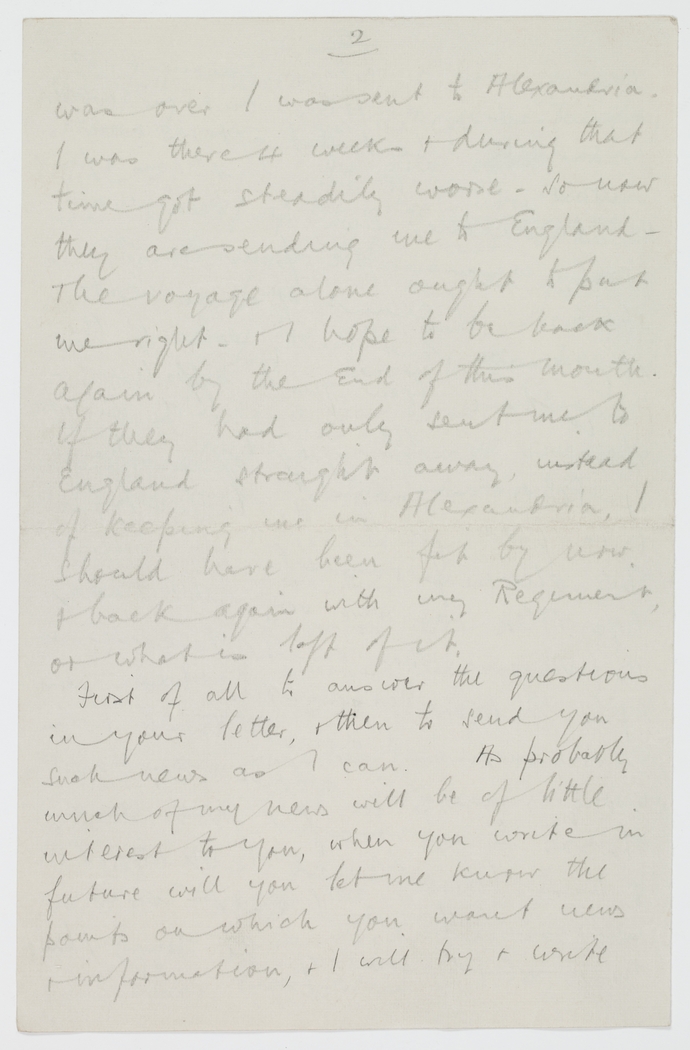 2
was over I was sent to Alexandria.
I was there 4 weeks + during that
time got steadily worse - so now
they are sending me to England -
The voyage alone ought to put
me right - + I hope to be back
again by the End of this month.
If they had only sent me to
England straight away, instead
of keeping me in Alexandria, I
should have been fit by now,
+ back again with my Regiment,
or what is left of it.
First of all to answer the questions
in your letter, + then to send you
such news as I can. As probably
much of my news will be of little
interest to you, when you write in
future will you let me know the
points on which you want news
+ information, + I will try + write